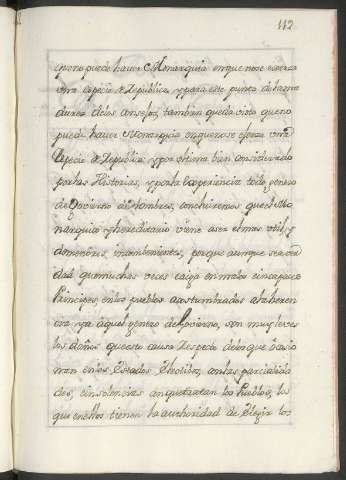 112
que no puede haver Monarquia en que no se exerza
vna Especie de Republica, y para este punto de la ma
durez delos consejos, tambien queda visto que no
puede haver Monarquia en que no se exerza vna
Especie de Republica: y por vltimo bien considerado
por las Historias, y por la Experiencia todo genero
de Govierno de hombres, concluiremos que el Mo
narquico y hereditario viene a ser el mas vtil, y
de menores inconbenientes, porque aunque sea ver
dad que muchas veces caiga en malos è incapaces
Principes, en los pueblos acostumbrados a la heren
cia, y a aquel genero de Govierno, son muy leves
los daños que esto causa Respecto delos que ocasio
nan en los Estados las parcialida
des, è insolencias con que tratan los Pueblos, los
que en ellos tienen la authoridad de Elegir los